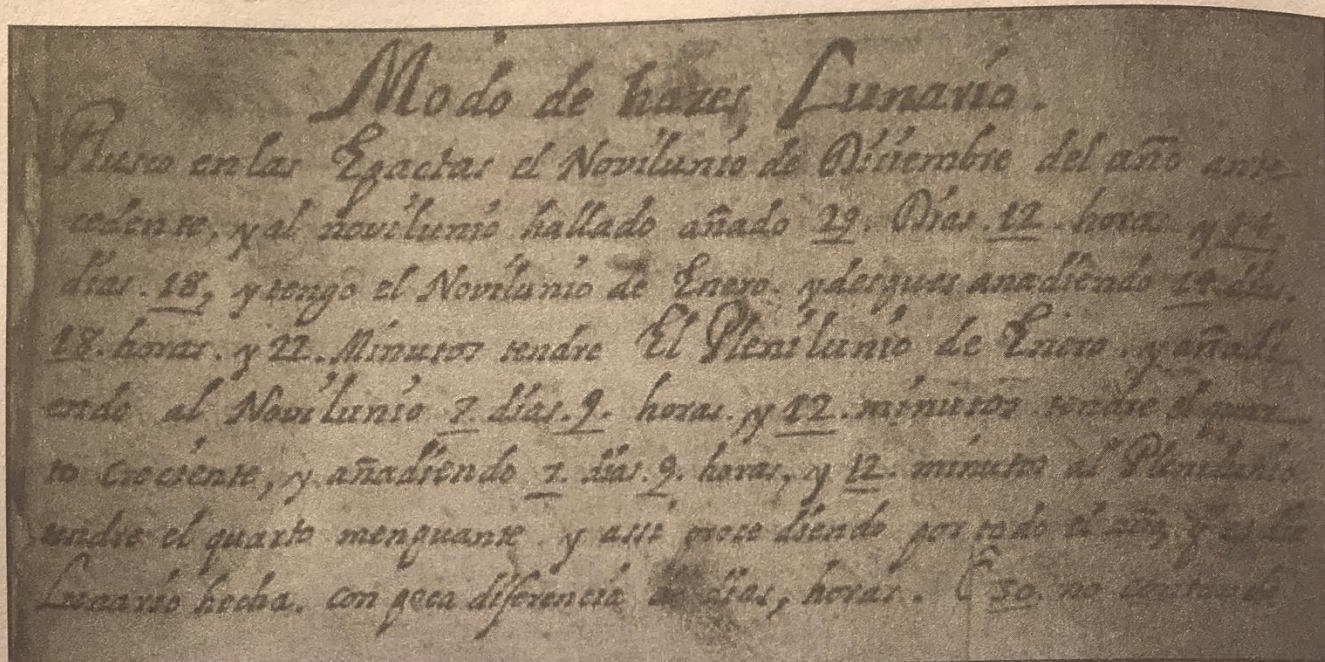 Modo de hazer Lunario.
Busco en las Epactas el Novilunio de Diciembre del año ante
cedente, y al novilunio hallado añado 29. Dias. 12 horas y
dias. 18, y tengo el Novilunio de Enero. y despues anadiendo 14 dias.
18. horas. y 22. Minutos tendre El Plenilunio de Enero. y añadi
endo al Novilunio 7 dias. 9. horas. y 12. minutos tendre el quar
to creciente, y añadiendo 7. dias. 9. horas, y 12. minutos al Plenilunio
tendre el quarto menguante. y assi procediendo por todo el año,
Lunario hecho. con poca diferencia de dias, horas. 30. no contando